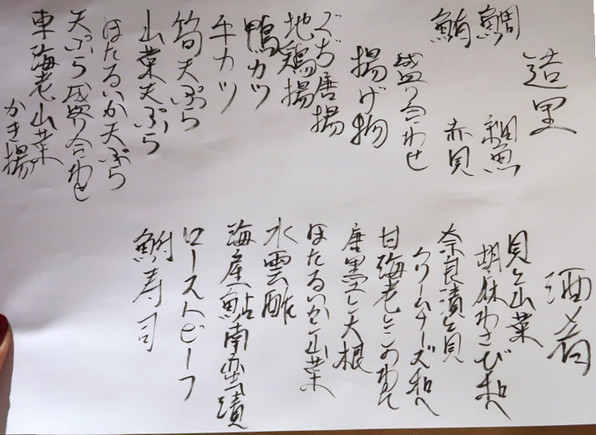 造里
鯛
鮪 赤貝
盛り合わせ
揚げ物
ぐぢ唐揚
地鶏揚
鴨カツ
牛カツ
筍天ぷら
山菜天ぷら
ほたるいか天ぷら
天ぷら盛り合わせ
車海老山菜
かき揚
酒肴
貝と山菜
胡麻わさび和へ
奈良漬と貝
クリームチーズ和へ
甘海老とこのわた
唐墨と大根
ほたるいかと山菜
水雲酢
海産鮎南蛮漬
ローストビーフ
鮒寿司